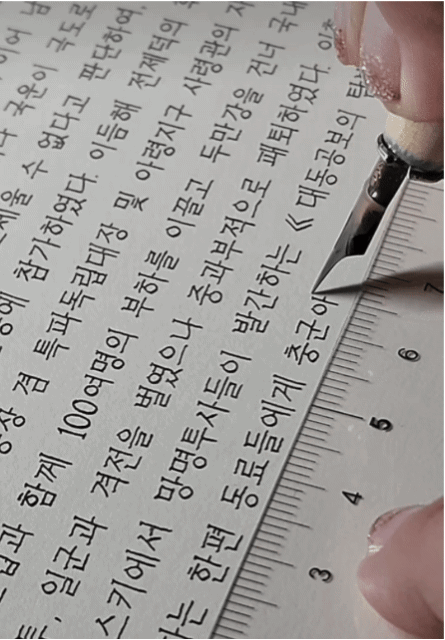 국운이 극도로
수 없다고 판단하여,
참가하였다. 이듬해 전제덕의
겸 특파독립대장 및 아령지구 사령관의
함께 100여명의 부하를 이끌고 두만강을 건너 국내
투, 일군과 격전을 벌였으나 중과부적으로 패퇴하였다.
스키에서 망명투사들이 발간하는 《대동공보의
는 한편 동료들에게 충군아
3 4 5 6 7